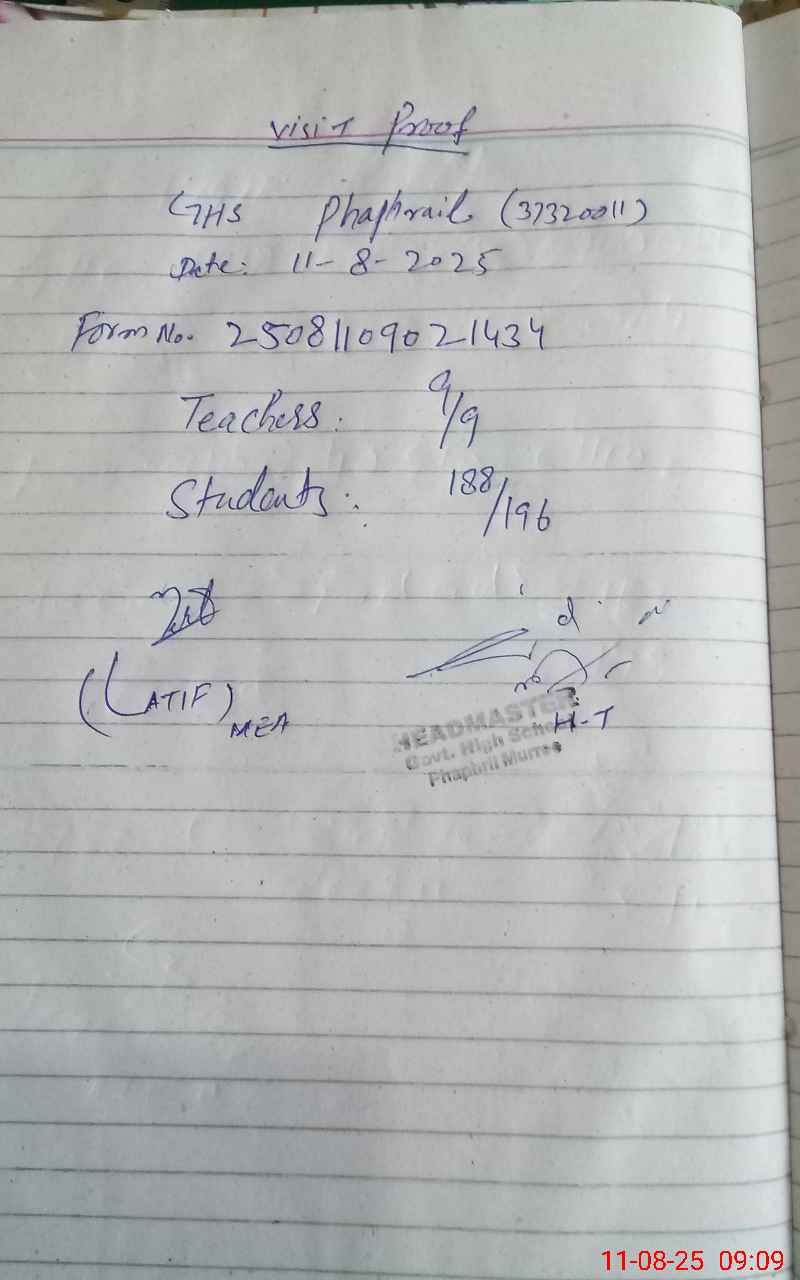 Visit Proof
GHS Phaphrail (37320011)
Date: 11-8-2025
Form No. 25081109021434
Teachers: 9/9
Students: 188/196
(LATIF)
MEA
H-T
HEADMASTER
Govt. High School
Phaphril Murree
11-08-25 09:09